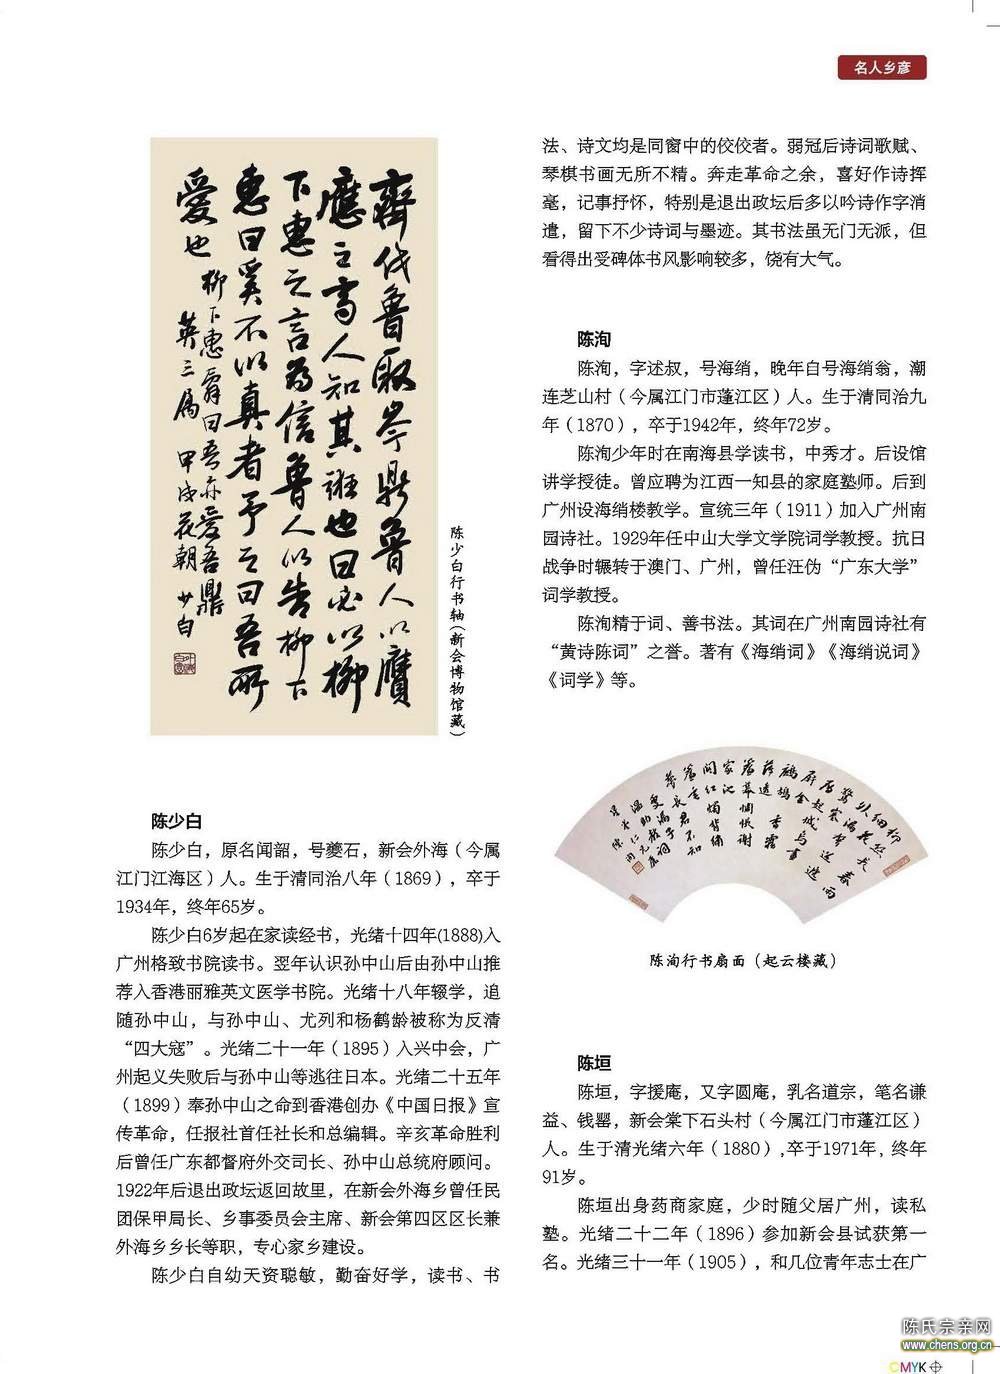 名人乡彦
齊伐魯取岑鼎魯人以贗
應之齊人知其誑也曰必以柳
下惠之言為信魯人以告柳下
惠曰奚不以真者予之曰吾所
愛也
柳下惠曰吾亦愛吾鼎
英三屬 甲戌花朝 少白
陈少白行书轴(新会博物馆藏)
陈少白
陈少白，原名闻韶，号夔石，新会外海（今属
江门江海区）人。生于清同治八年（1869），卒于
1934年，终年65岁。
陈少白6岁起在家读经书，光绪十四年(1888)入
广州格致书院读书。翌年认识孙中山后由孙中山推
荐入香港丽雅英文医学书院。光绪十八年辍学，追
随孙中山，与孙中山、尤列和杨鹤龄被称为反清
“四大寇”。光绪二十一年（1895）入兴中会，广
州起义失败后与孙中山等逃往日本。光绪二十五年
（1899）奉孙中山之命到香港创办《中国日报》宣
传革命，任报社首任社长和总编辑。辛亥革命胜利
后曾任广东都督府外交司长、孙中山总统府顾问。
1922年后退出政坛返回故里，在新会外海乡曾任民
团保甲局长、乡事委员会主席、新会第四区区长兼
外海乡乡长等职，专心家乡建设。
陈少白自幼天资聪敏，勤奋好学，读书、书
法、诗文均是同窗中的佼佼者。弱冠后诗词歌赋、
琴棋书画无所不精。奔走革命之余，喜好作诗挥
毫，记事抒怀，特别是退出政坛后多以吟诗作字消
遣，留下不少诗词与墨迹。其书法虽无门无派，但
看得出受碑体书风影响较多，饶有大气。
陈洵
陈洵，字述叔，号海绡，晚年自号海绡翁，潮
连芝山村（今属江门市蓬江区）人。生于清同治九
年（1870），卒于1942年，终年72岁。
陈洵少年时在南海县学读书，中秀才。后设馆
讲学授徒。曾应聘为江西一知县的家庭塾师。后到
广州设海绡楼教学。宣统三年（1911）加入广州南
园诗社。1929年任中山大学文学院词学教授。抗日
战争时辗转于澳门、广州，曾任汪伪“广东大学”
词学教授。
陈洵精于词、善书法。其词在广州南园诗社有
“黄诗陈词”之誉。著有《海绡词》《海绡说词》
《词学》等。
柳絲長春雨
細花外漏聲迢遞
驚塞雁起城烏畫
屏金鷓鴣
香霧薄透
簾幕惆悵謝
家池閣
紅燭背繡
簾垂
夢長君不知
陈洵行书扇面（起云楼藏）
陈垣
陈垣，字援庵，又字圆庵，乳名道宗，笔名谦
益、钱罂，新会棠下石头村（今属江门市蓬江区）
人。生于清光绪六年（1880）,卒于1971年，终年
91岁。
陈垣出身药商家庭，少时随父居广州，读私
塾。光绪二十二年（1896）参加新会县试获第一
名。光绪三十一年（1905），和几位青年志士在广
陈氏宗亲网
www.chens.org.cn
CMYK